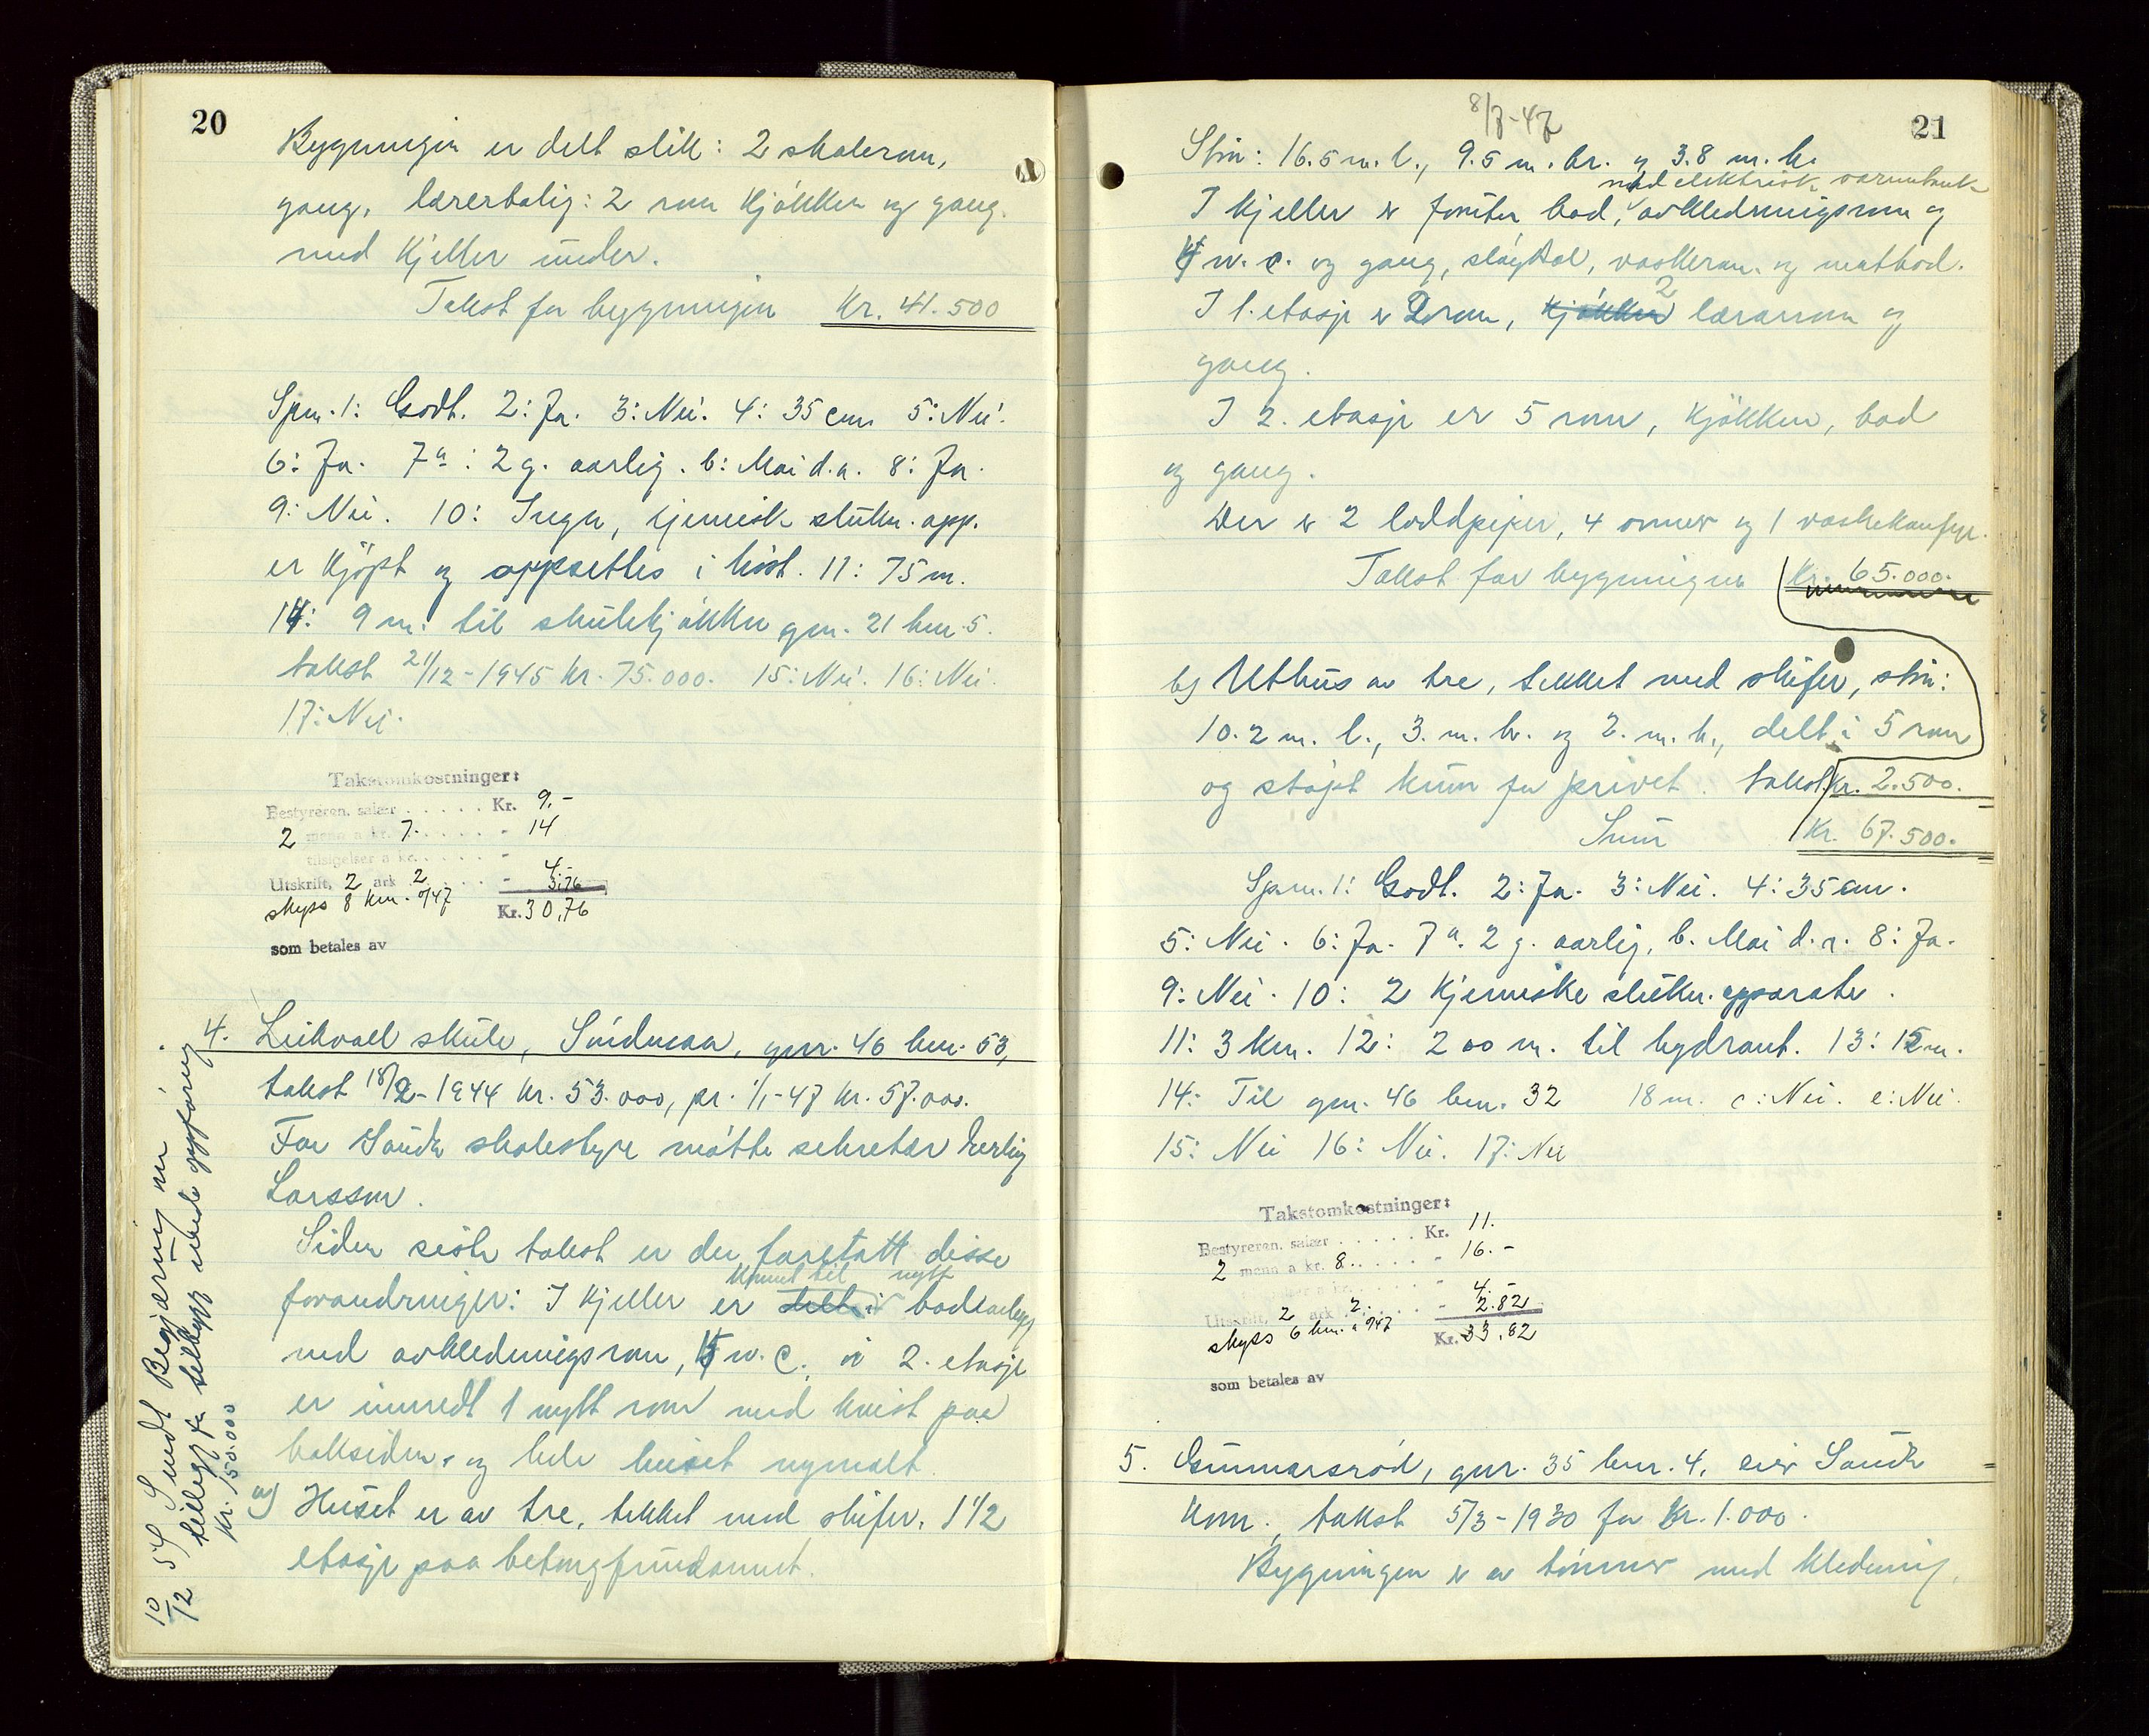 20
Bygningen er delt slik: 2 skolerom,
gang, lærerbolig: 2 rom kjøkken og gang.
med kjeller under.
Takst for bygningen Kr. 41.500
Spm. 1: Godt. 2: Ja. 3: Nei. 4: 35 cm 5: Nei.
6: Ja. 7a: 2 g. aarlig. b: Mai d.a. 8: Ja.
9: Nei. 10: Ingen, kjemisk slukn. app.
er kjøpt og oppsettes i høst. 11: 75 m.
14: 9 m. til skulekjøkken gnr. 21 bnr. 5.
takst 21/12-1945 kr. 75.000. 15: Nei. 16: Nei.
17: Nei.
Takstomkostninger:
Bestyreren, salær ..... Kr. 9.-
2 menn a kr. 7. ..... - 14
tilsigelser a kr. ..... -
4.-
Utskrift, 2 ark 2 .... - 3.76
skyss 8 km. a /47 Kr. 30,76
som betales av
4. Leikvoll skule, Søndenaa, gnr. 46 bnr. 53,
takst 18/2-1944 kr. 53.000, pr. 1/1-47 kr. 57.000.
For Sauda skolestyre møtte sekretær
Larssen.
Siden siste takst er der foretatt disse
kommet til nytt
forandringer: I kjeller er delt i badeanlegg
med avkledningsrom, 4 w.c. i 2. etasje
er innredt 1 nytt rom med kvist paa
baksiden, og hele huset nymalt.
a) Huset er av tre, tekket med skifer, 1 1/2
etasje paa betongfundament.
10/12 54 Sendt Begjæring om
tillegg for tilbygg under oppføring
kr. 150.000
8/7-47
21
Stn: 16.5 m. l., 9.5 m. br. og 3.8 m. h.
med elektrisk varmtank
I kjeller er fomster, bad, avkledningsrom og
4 w.c. og gang, sløydsal, vaskerom og matbod.
2
I 1. etasje er 2 rom, kjøkken lærarrom og
gang.
I 2. etasje er 5 rom, kjøkken, bad
og gang.
Der er 2 loddpiper, 4 ovner og 1 vaskekamfyr.
Takst for bygningen Kr. 65.000.
b) Uthus av tre, tekket med skifer, stn:
10.2 m. l., 3. m. br. og 2. m. h., delt i 5 rom
og støpt kum for privet. takst Kr. 2.500.
Sum Kr. 67.500.
Spm. 1: Godt. 2: Ja. 3: Nei. 4: 35 cm.
5: Nei. 6: Ja. 7a. 2 g. aarlig, b. Mai d.a. 8: Ja.
9: Nei. 10: 2 kjemiske slukn. apparater.
11: 3 km. 12: 200 m. til hydrant. 13: 15 m.
14: Til gnr. 46 bnr. 32 18 m. c: Nei. e: Nei.
15: Nei 16: Nei. 17: Nei
Takstomkostninger:
Bestyreren, salær ..... Kr. 11.
2 menn a kr. 8. .... - 16.-
4.-
Utskrift, 2 ark 2. .... - 2.82
skyss 6 km. a /47 Kr. 33,82
som betales av
5. Gunnarsrød, gnr. 35 bnr. 4, eier Sauda
kom., takst 5/3-1930 for kr. 1.000.
Bygningen er av tømmer med kledning,